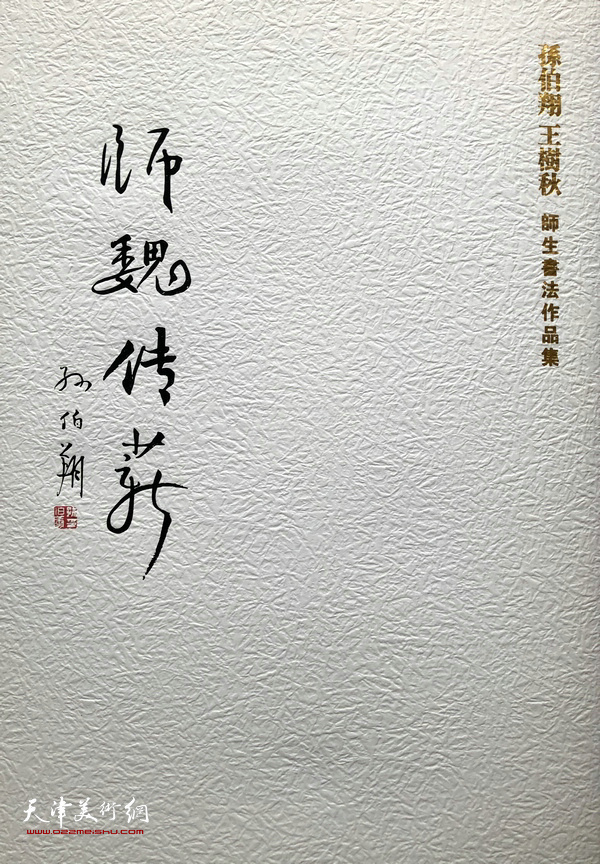 孫伯翔 王樹秋 師生書法作品集
師魏传薪
孙伯翔
天津美術網
www.022meishu.com